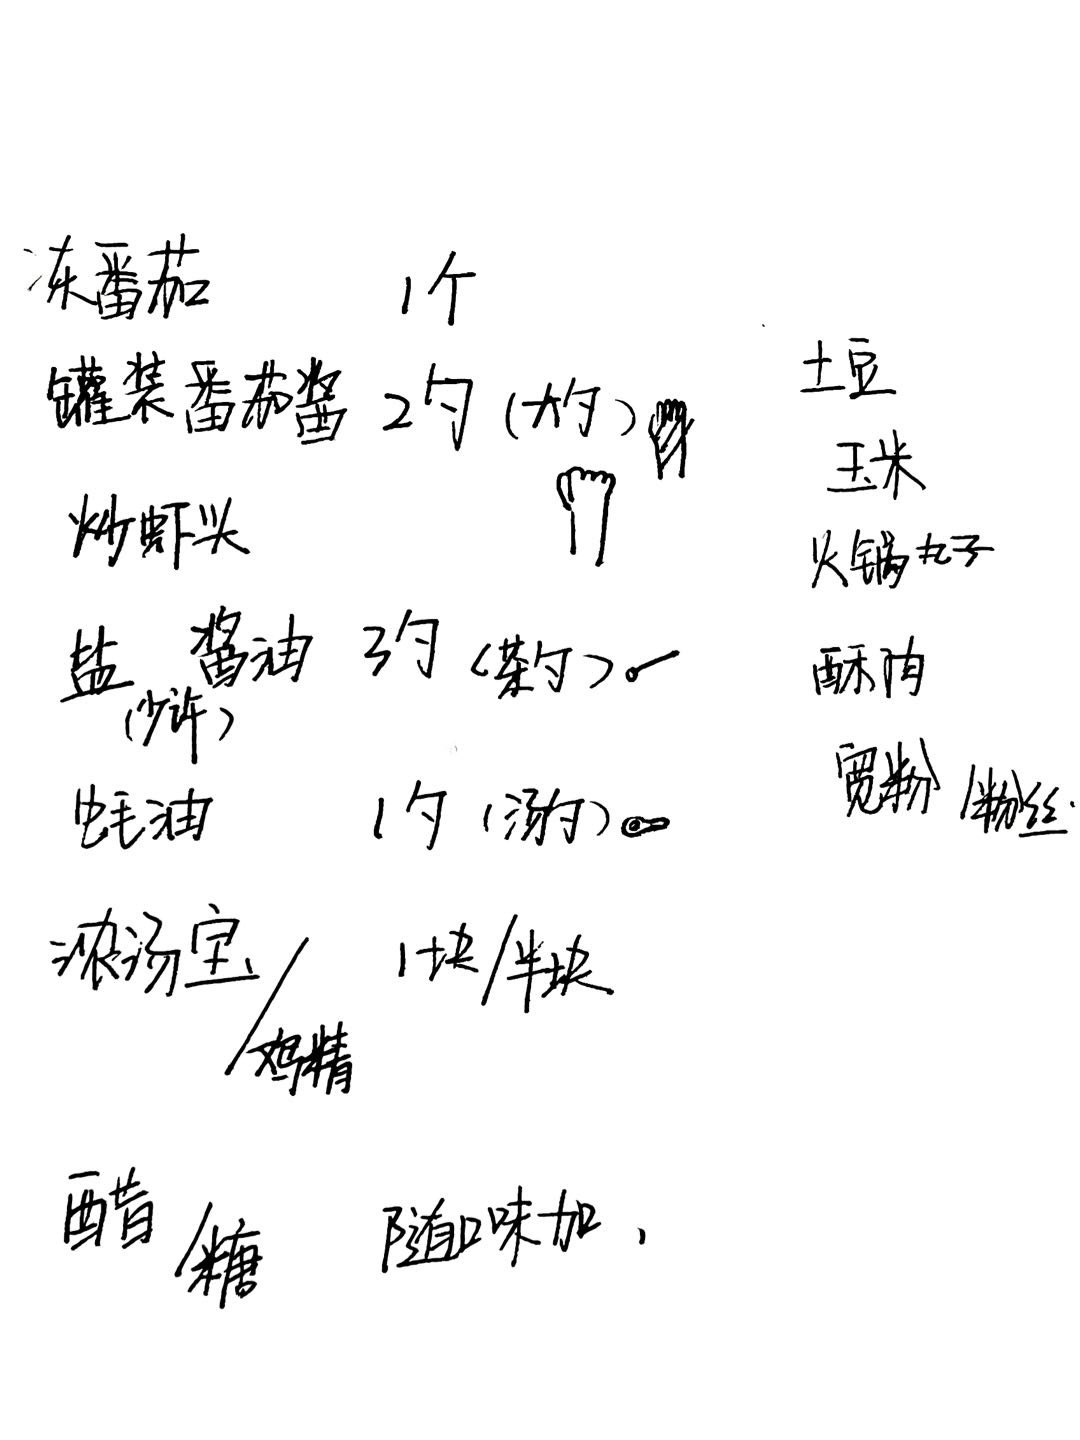 冻番茄 1个
罐装番茄酱 2勺(大勺)
炒虾头
盐 酱油 3勺(茶勺)
(少许)
蚝油 1勺(汤勺)
浓汤宝/鸡精 1块/半块
醋/糖 随口味加,
土豆
玉米
火锅丸子
酥肉
宽粉/粉丝.